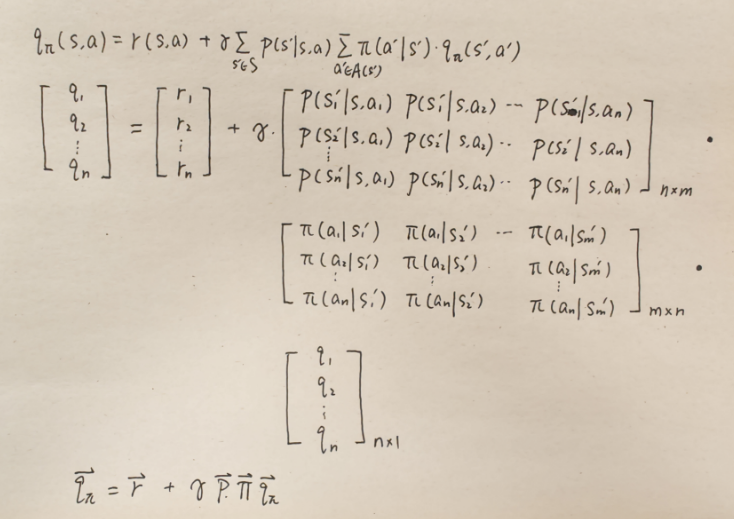 qπ(s,a) = r(s,a) + γ Σ p(s'|s,a) Σ π(a'|s')·qπ(s',a')
s'∈S a'∈A(s')
[ q₁ ] = [ r₁ ] + γ· [ p(s₁'|s,a₁) p(s₁'|s,a₂) ··· p(s₁'|s,aₙ) ] ·
[ q₂ ] [ r₂ ] [ p(s₂'|s,a₁) p(s₂'|s,a₂) ·· p(s₂'|s,aₙ) ]
⋮ ⋮ ⋮
[ qₙ ] [ rₙ ] [ p(sₙ'|s,a₁) p(sₙ'|s,a₂) ·· p(sₙ'|s,aₙ) ] n×m
[ π(a₁|s₁') π(a₁|s₂') ··· π(a₁|sₘ') ] ·
[ π(a₂|s₁') π(a₂|s₂') π(a₂|sₘ') ]
⋮ ⋮ ⋮
[ π(aₙ|s₁') π(aₙ|s₂') π(aₙ|sₘ') ] m×n
[ q₁ ]
[ q₂ ]
⋮
[ qₙ ] n×1
q⃗π = r⃗ + γ P⃗·Π⃗ q⃗π